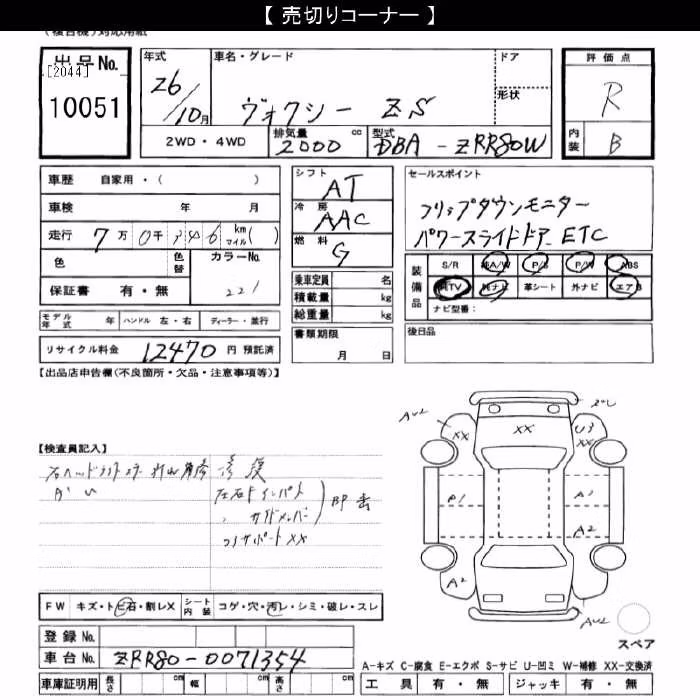 【 売切りコーナー 】
(複合機)対応用紙
出品No.
[2044]
10051
年式
26/10月
車名・グレード
ヴォクシー ZS
ドア
形状
評価点
R
内装
B
2WD・4WD
排気量
2000 cc
型式
DBA-ZRR80W
車歴 自家用・( )
車検 年 月
走行 7万0千346 km マイル( )
色
色替
カラーNo.
221
保証書 有・無
シフト
AT
冷房
AAC
燃料
G
乗車定員 名
積載量 kg
総重量 kg
セールスポイント
フリップダウンモニター
パワースライドドア ETC
装備品
S/R
A/W
P/S
P/W
ABS
TV
ナビ
革シート
外ナビ
エアB
ナビ型番:
モデル年式 年
ハンドル 左・右
ディーラー・並行
書類期限
月 日
後日品
リサイクル料金 12470 円 預託済
【出品店申告欄(不良箇所・欠品・注意事項等)】
【検査員記入】
右ヘッドライト
修復
左右Fインパネ
サイドメンバー
コアサポートXX
AW2
XX
XX
U3
XX
A1
A1
A2
A2
AW2
FW
キズ・トビ石・割レX
シート内装
コゲ・穴・汚レ・シミ・破レ・スレ
スペア
登録No.
車台No. ZRR80-0071354
A-キズ C-腐食 E-エクボ S-サビ U-凹ミ W-補修 XX-交換済
車庫証明用
長さ cm
幅 cm
高さ cm
工具 有・無
ジャッキ 有・無